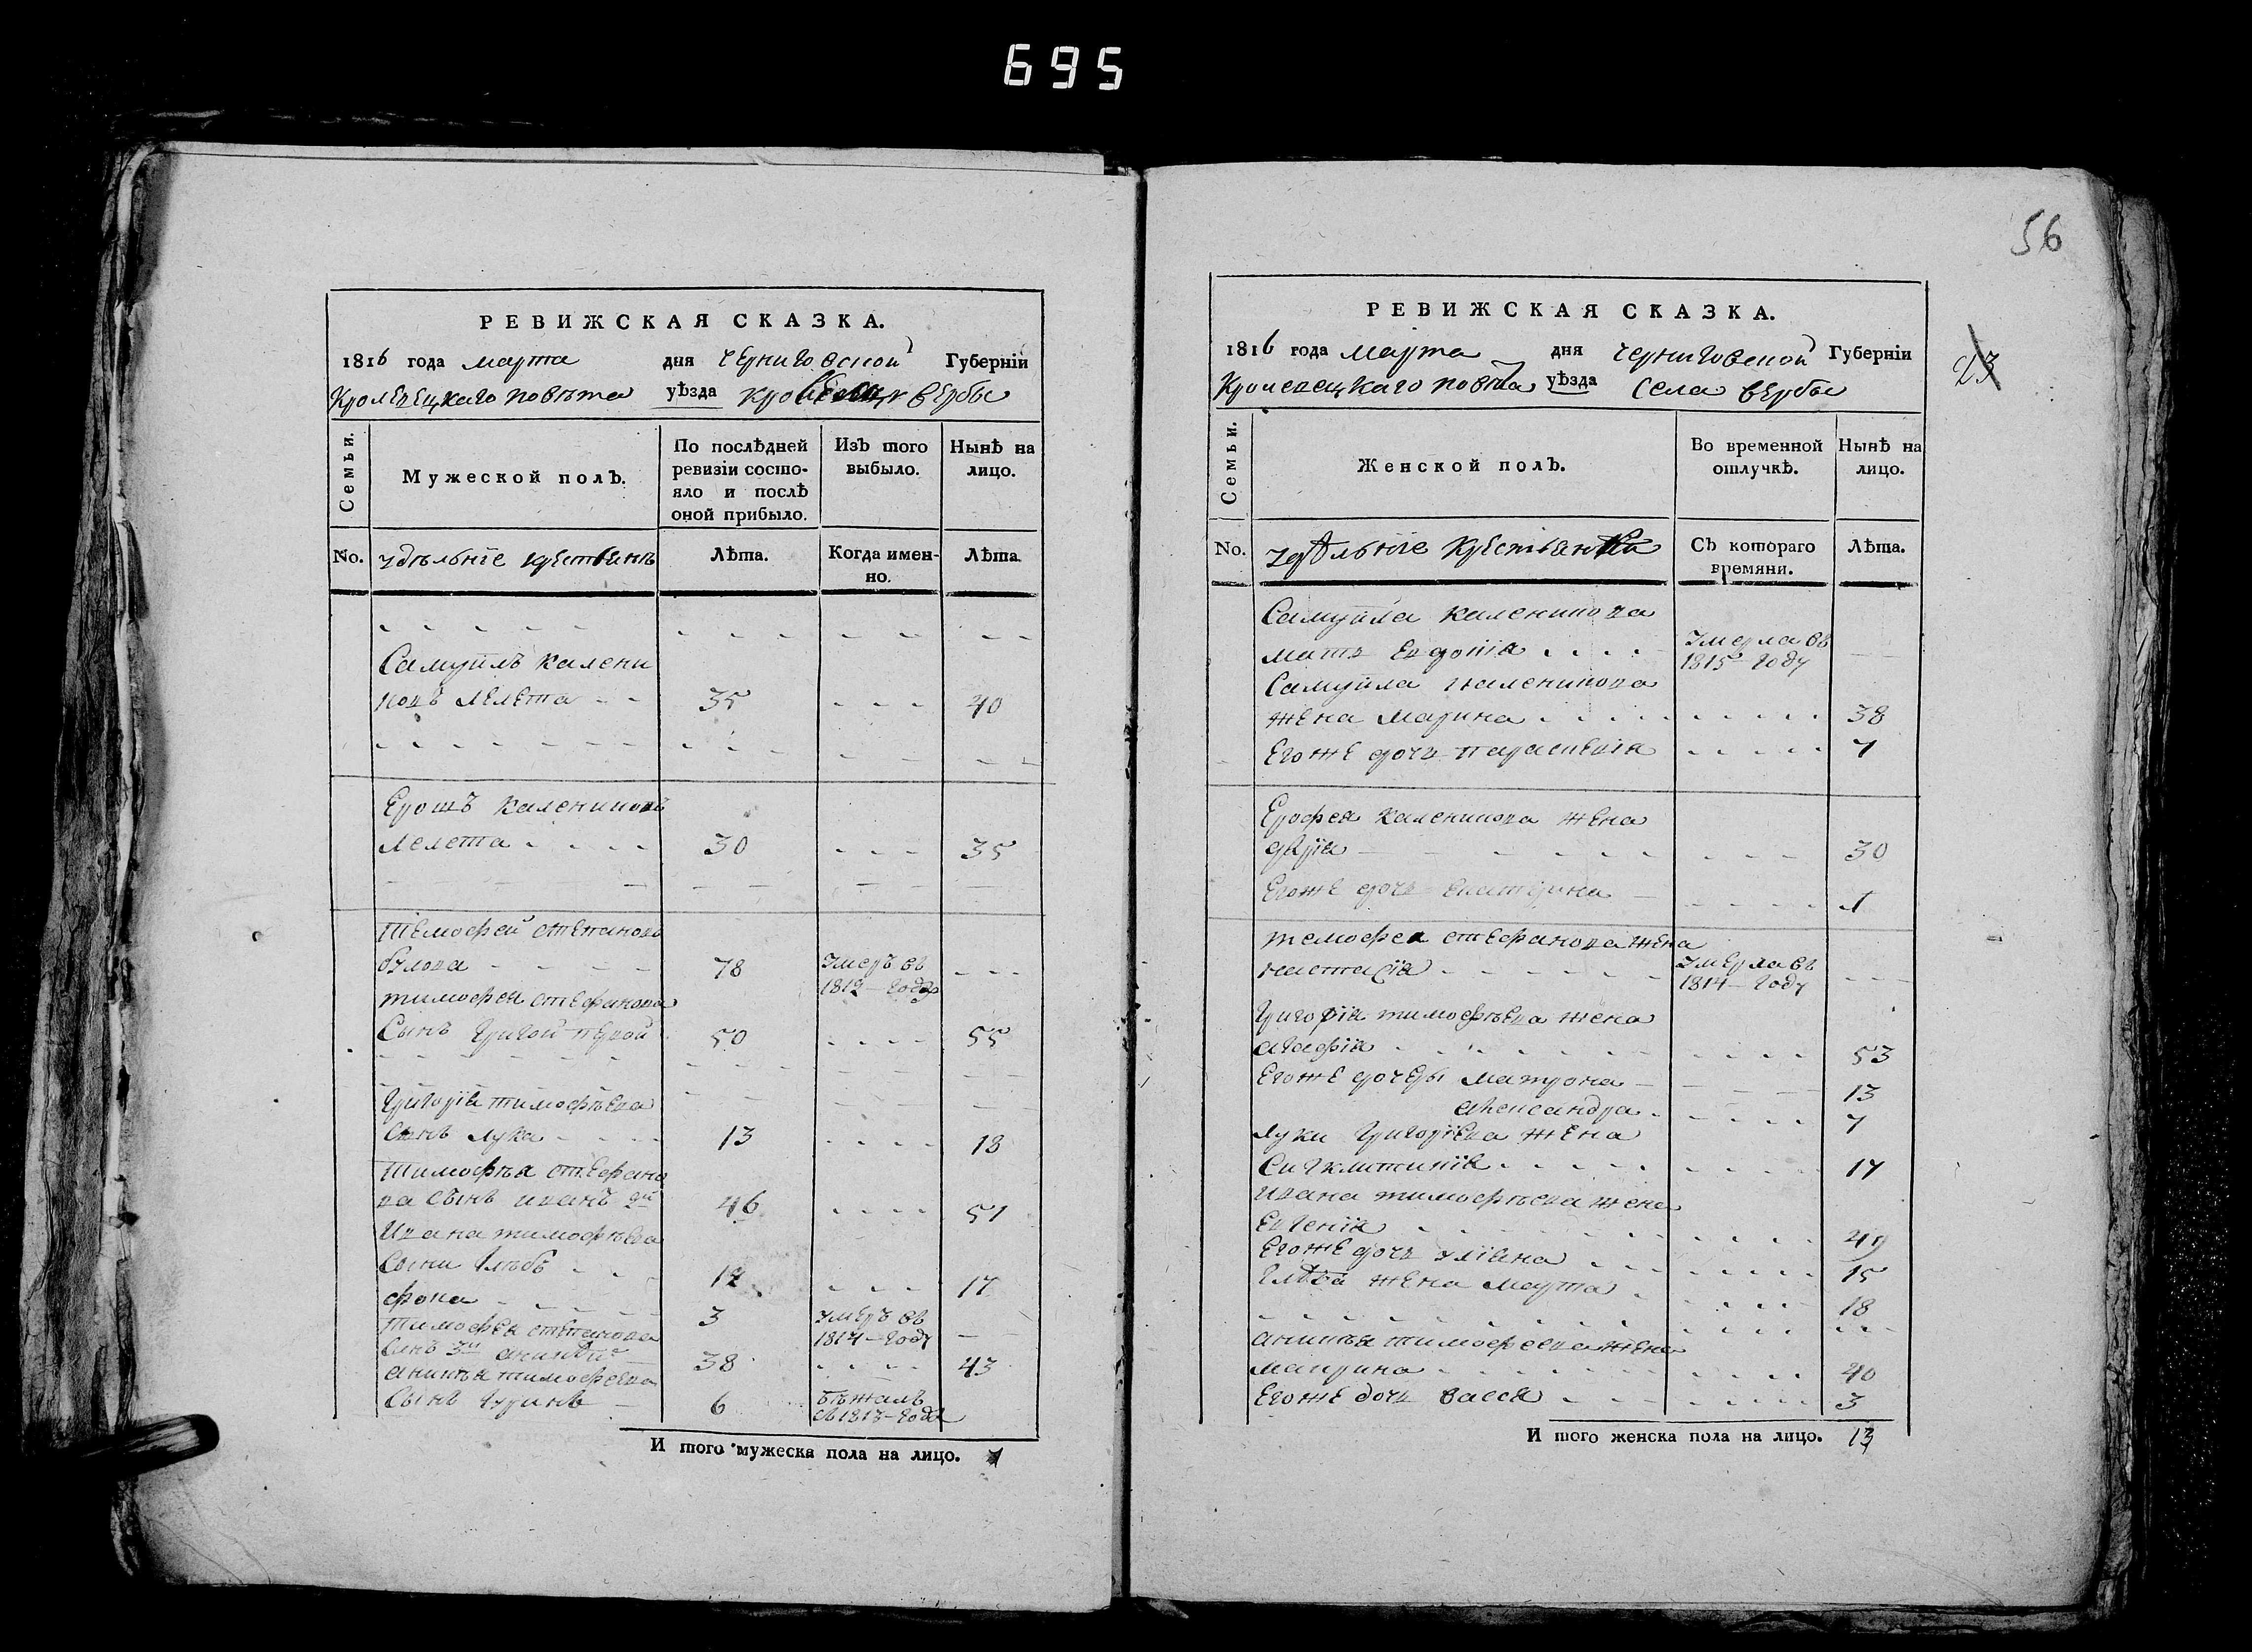 695
РЕВИЖСКАЯ СКАЗКА.
1816 года марта дня Черниговской Губернїи
Кролевецкаго повѣта уѣзда вербы
Семьи.
Мужеской полъ.
По послѣдней ревизїи состо-яло и послѣ оной прибыло.
Изъ того выбыло.
Нынѣ на лицо.
No. удѣльнїе
Лѣта.
Когда имен-но.
Лѣта.
Самуйлъ калени
ковъ Лелета 35 40
Ерошъ калениковъ
Лелета 30 35
Тѣмофей степановъ
78 умеръ въ
1812 году
тимофея стефанова
Сынъ Григой первой 50 55
Григорїя тимофѣева
Сынъ лука 13 18
Тимофѣя стефано
ва сынъ иванъ 2й 46 51
Ивана тимофѣева
Сыни Глѣбъ 12 17
фока 3 умеръ въ
1814 году
тимофея степанова
Синъ 3й 38 43
аникѣя тимофеева
Сынъ 6 бѣжалъ
въ 1813 годѣ
И того мужеска пола на лицо.
56
23
РЕВИЖСКАЯ СКАЗКА.
1816 года марта дня Черниговской Губернїи
Кролевецкаго повѣта уѣзда Села вербы
Семьи.
Женской полъ.
Во временной отлучкѣ.
Нынѣ на лицо.
No. удѣльнїе крестьянки
Съ котораго времяни.
Лѣта.
Самуйла каленикова
мать Евдокїя умерла въ
1815 году
Самуйла каленикова
жена Марина 38
Егоже дочь параскевїя 7
Ерофея каленикова жена
дарїя 30
Егоже дочь екатерина 1
темофея стефанова жена
настасїя умерла въ
1814 году
Григорїя тимофѣева жена
агафїя 53
Егоже дочеры матрона 13
александра 7
луки Григорїева жена
Сигклитикїя 17
Ивана тимофѣева жена
Евгенїя 49
Егоже дочь улїяна 15
Глѣба жена марта 18
аникѣя тимофеева жена
макрина 40
Егоже дочь Васса 3
И того женска пола на лицо. 13